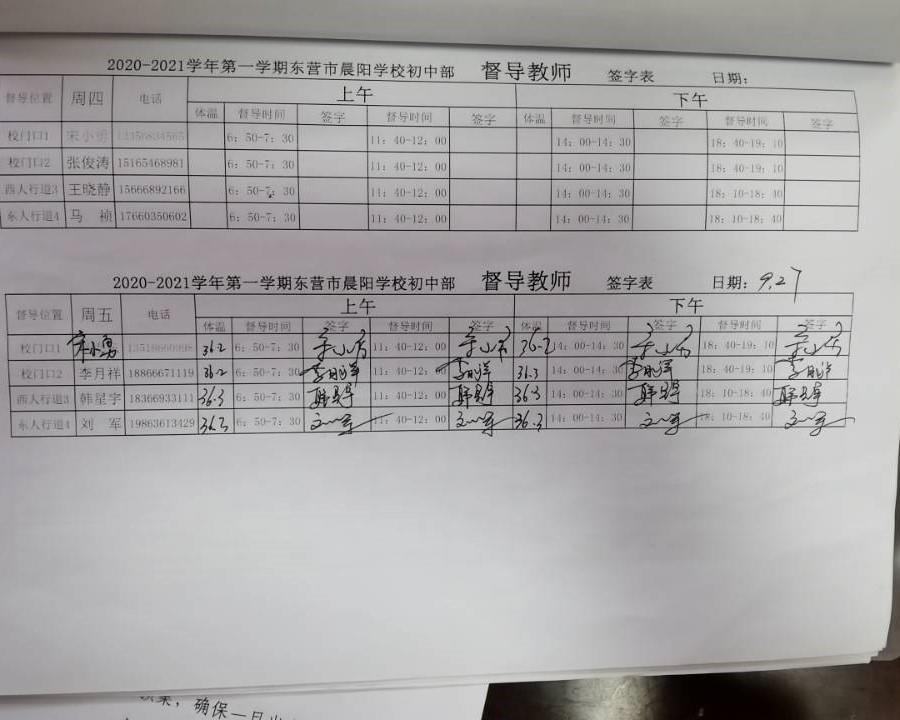 2020-2021学年第一学期东营市晨阳学校初中部 督导教师 签字表 日期:
督导位置 周四 电话 上午 下午
体温 督导时间 签字 督导时间 签字 体温 督导时间 签字 督导时间 签字
校门口1 宋小勇 6: 50-7: 30 11: 40-12: 00 14: 00-14: 30 18: 40-19: 10
校门口2 张俊涛 15165468981 6: 50-7: 30 11: 40-12: 00 14: 00-14: 30 18: 40-19: 10
西人行道3 王晓静 15666892166 6: 50-7: 30 11: 40-12: 00 14: 00-14: 30 18: 10-18: 40
东人行道4 马 祯 17660350602 6: 50-7: 30 11: 40-12: 00 14: 00-14: 30 18: 10-18: 40
2020-2021学年第一学期东营市晨阳学校初中部 督导教师 签字表 日期: 9.27
督导位置 周五 电话 上午 下午
体温 督导时间 签字 督导时间 签字 体温 督导时间 签字 督导时间 签字
校门口1 宋小勇 36.2 6: 50-7: 30 11: 40-12: 00 36.2 14: 00-14: 30 18: 40-19: 10
校门口2 李月祥 18866671119 36.2 6: 50-7: 30 李月祥 11: 40-12: 00 李月祥 36.3 14: 00-14: 30 李月祥 18: 40-19: 10 李月祥
西人行道3 韩星宇 18366933111 36.3 6: 50-7: 30 11: 40-12: 00 36.3 14: 00-14: 30 18: 10-18: 40
东人行道4 刘 军 19863613429 36.3 6: 50-7: 30 刘军 11: 40-12: 00 刘军 36.3 14: 00-14: 30 刘军 18: 10-18: 40 刘军
，确保一旦